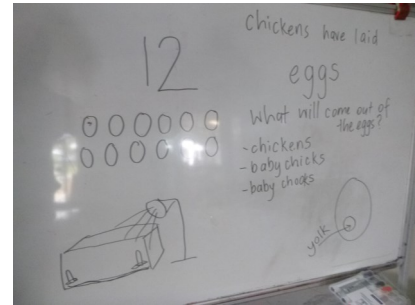 12
chickens have laid
eggs
What will come out of
the eggs?
-chickens
-baby chicks
-baby chooks
yolk